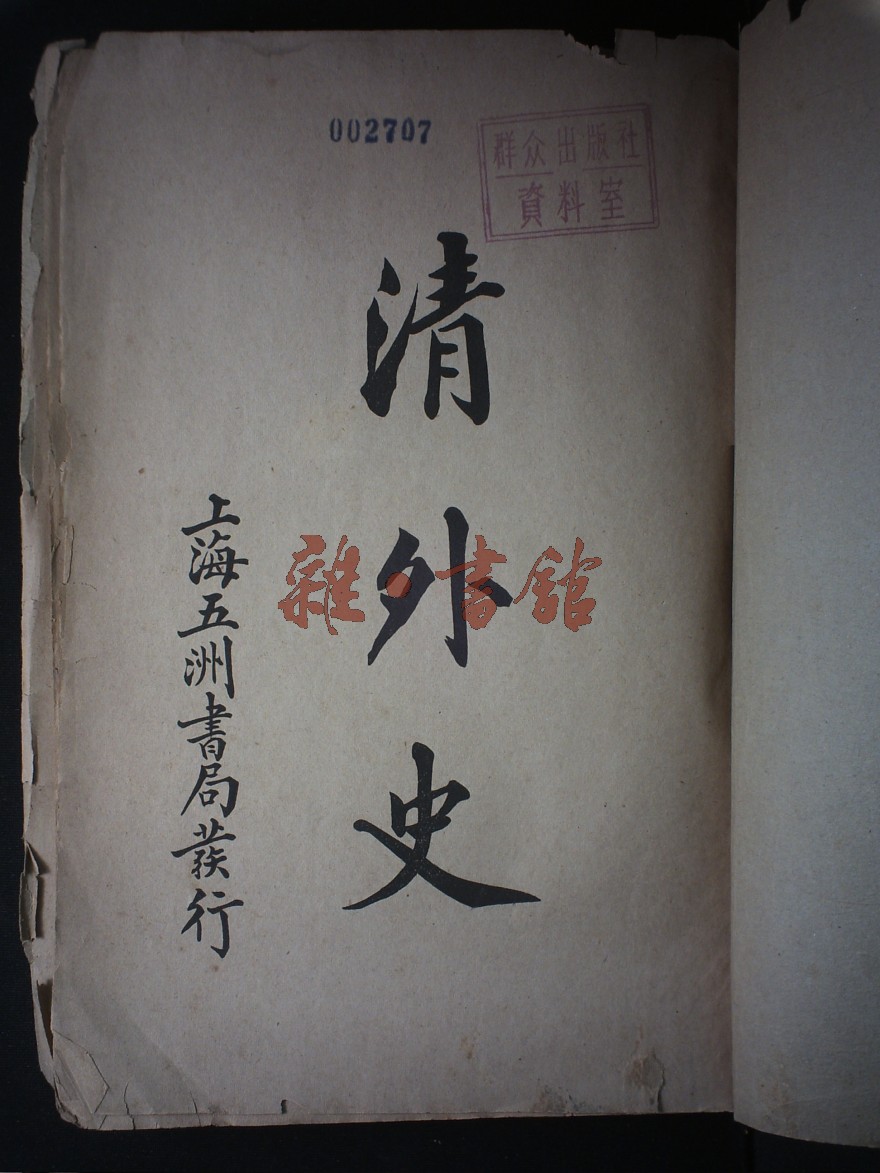 002707
群众出版社
資料室
清外史
上海五洲書局發行
雜·書館